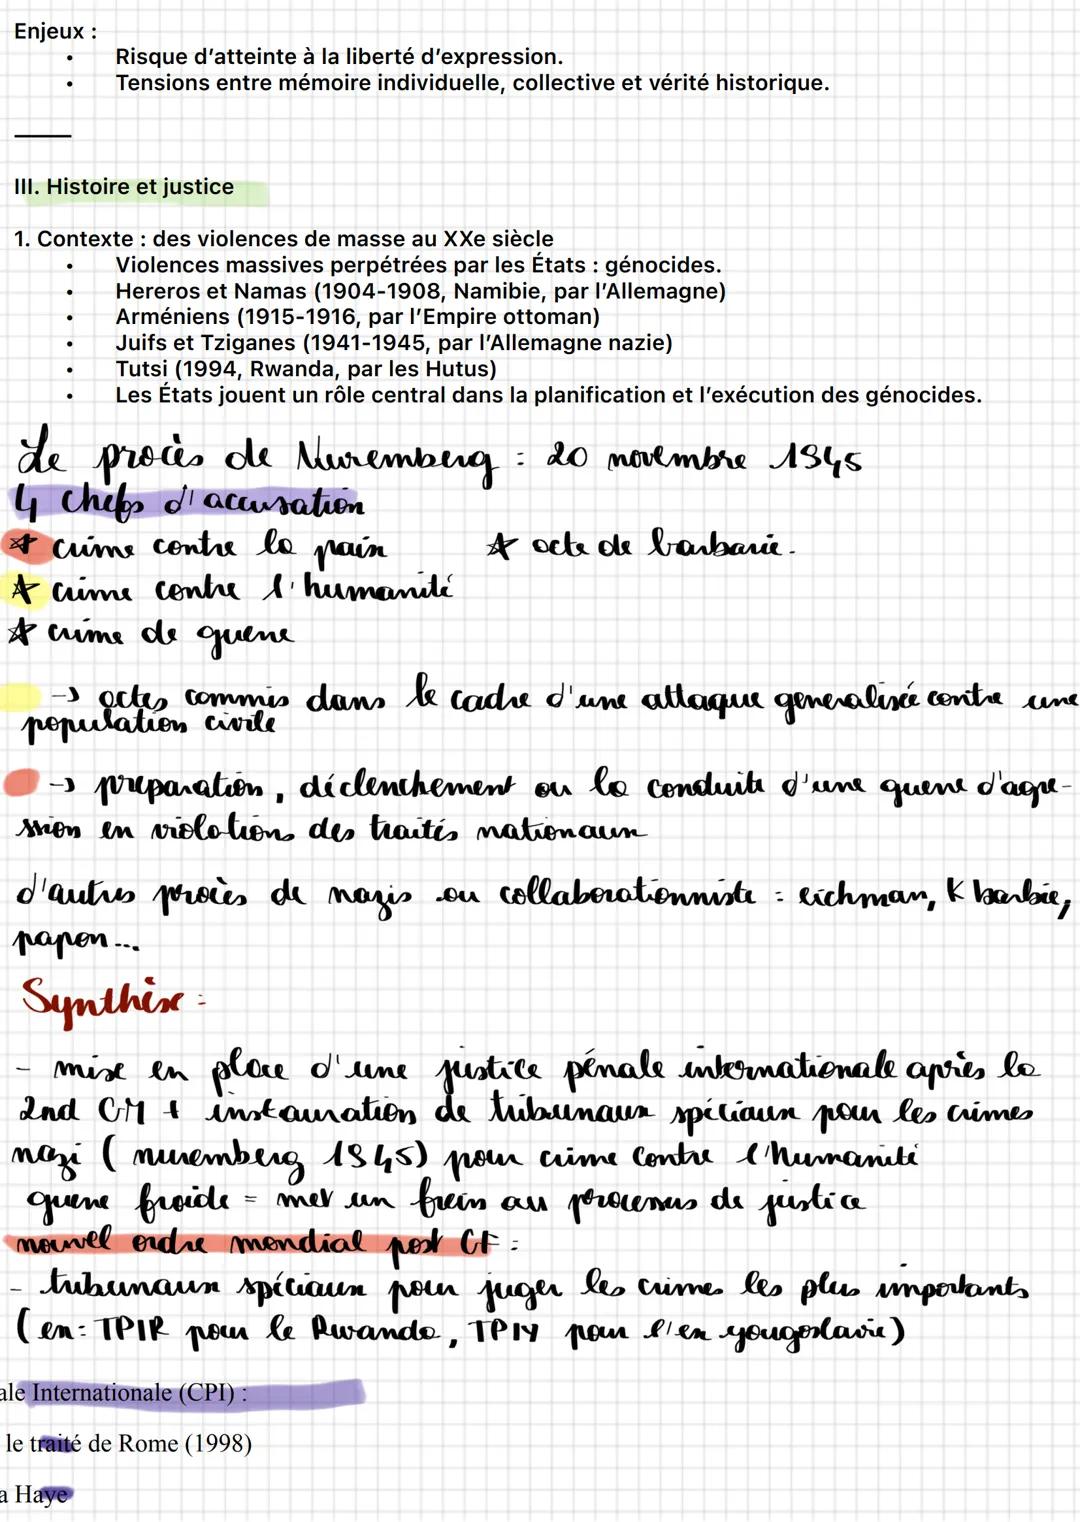 Enjeux :
• Risque d'atteinte à la liberté d'expression.
• Tensions entre mémoire individuelle, collective et vérité historique.
III. Histoire et justice
1. Contexte : des violences de masse au XXe siècle
• Violences massives perpétrées par les États : génocides.
• Hereros et Namas (1904-1908, Namibie, par l'Allemagne)
• Arméniens (1915-1916, par l'Empire ottoman)
• Juifs et Tziganes (1941-1945, par l'Allemagne nazie)
• Tutsi (1994, Rwanda, par les Hutus)
• Les États jouent un rôle central dans la planification et l'exécution des génocides.
Le procès de Nuremberg : 20 novembre 1945
4 chefs d'accusation
* crime contre la paix * acte de barbarie.
* crime contre l'humanité
* crime de guerre
→ actes commis dans le cadre d'une attaque generalisée contre une
population civile
→ preparation, déclenchement ou la conduite d'une guerre d'agre-
ssion en violations des traités nationaux
d'autres procès de nazis ou collaborationniste : eichman, K barbie,
papon...
Synthèse :
- mise en place d'une justice pénale internationale après la
2nd GM + instauration de tribunaux spéciaux pour les crimes
nazi ( nuremberg 1945) pour crime contre l'Humanité
guerre froide = met un frein au processus de justice
nouvel ordre mondial post GF :
- tribunaux spéciaux pour juger les crimes les plus importants
( ex : TPIR pour le Rwanda, TPIY pour l'ex yougoslavie )
ale Internationale (CPI) :
le traité de Rome (1998)
a Haye